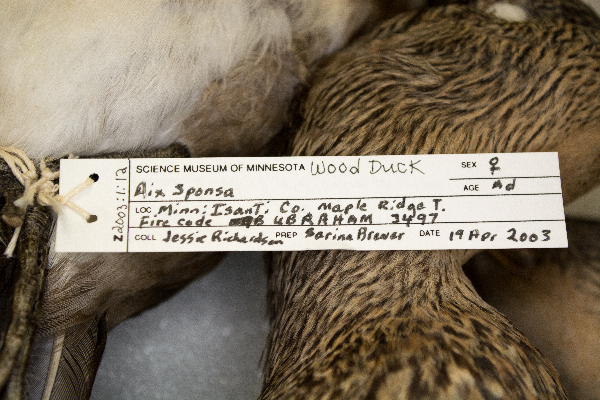 SCIENCE MUSEUM OF MINNESOTA Wood Duck SEX ♀
Aix Sponsa AGE Ad
LOC Minn: Isanti Co. Maple Ridge T.
Fire code ABRAHAM 3497
COLL Jessie Richardson PREP Sarina Brewer DATE 19 Apr 2003
Z2003:1:12